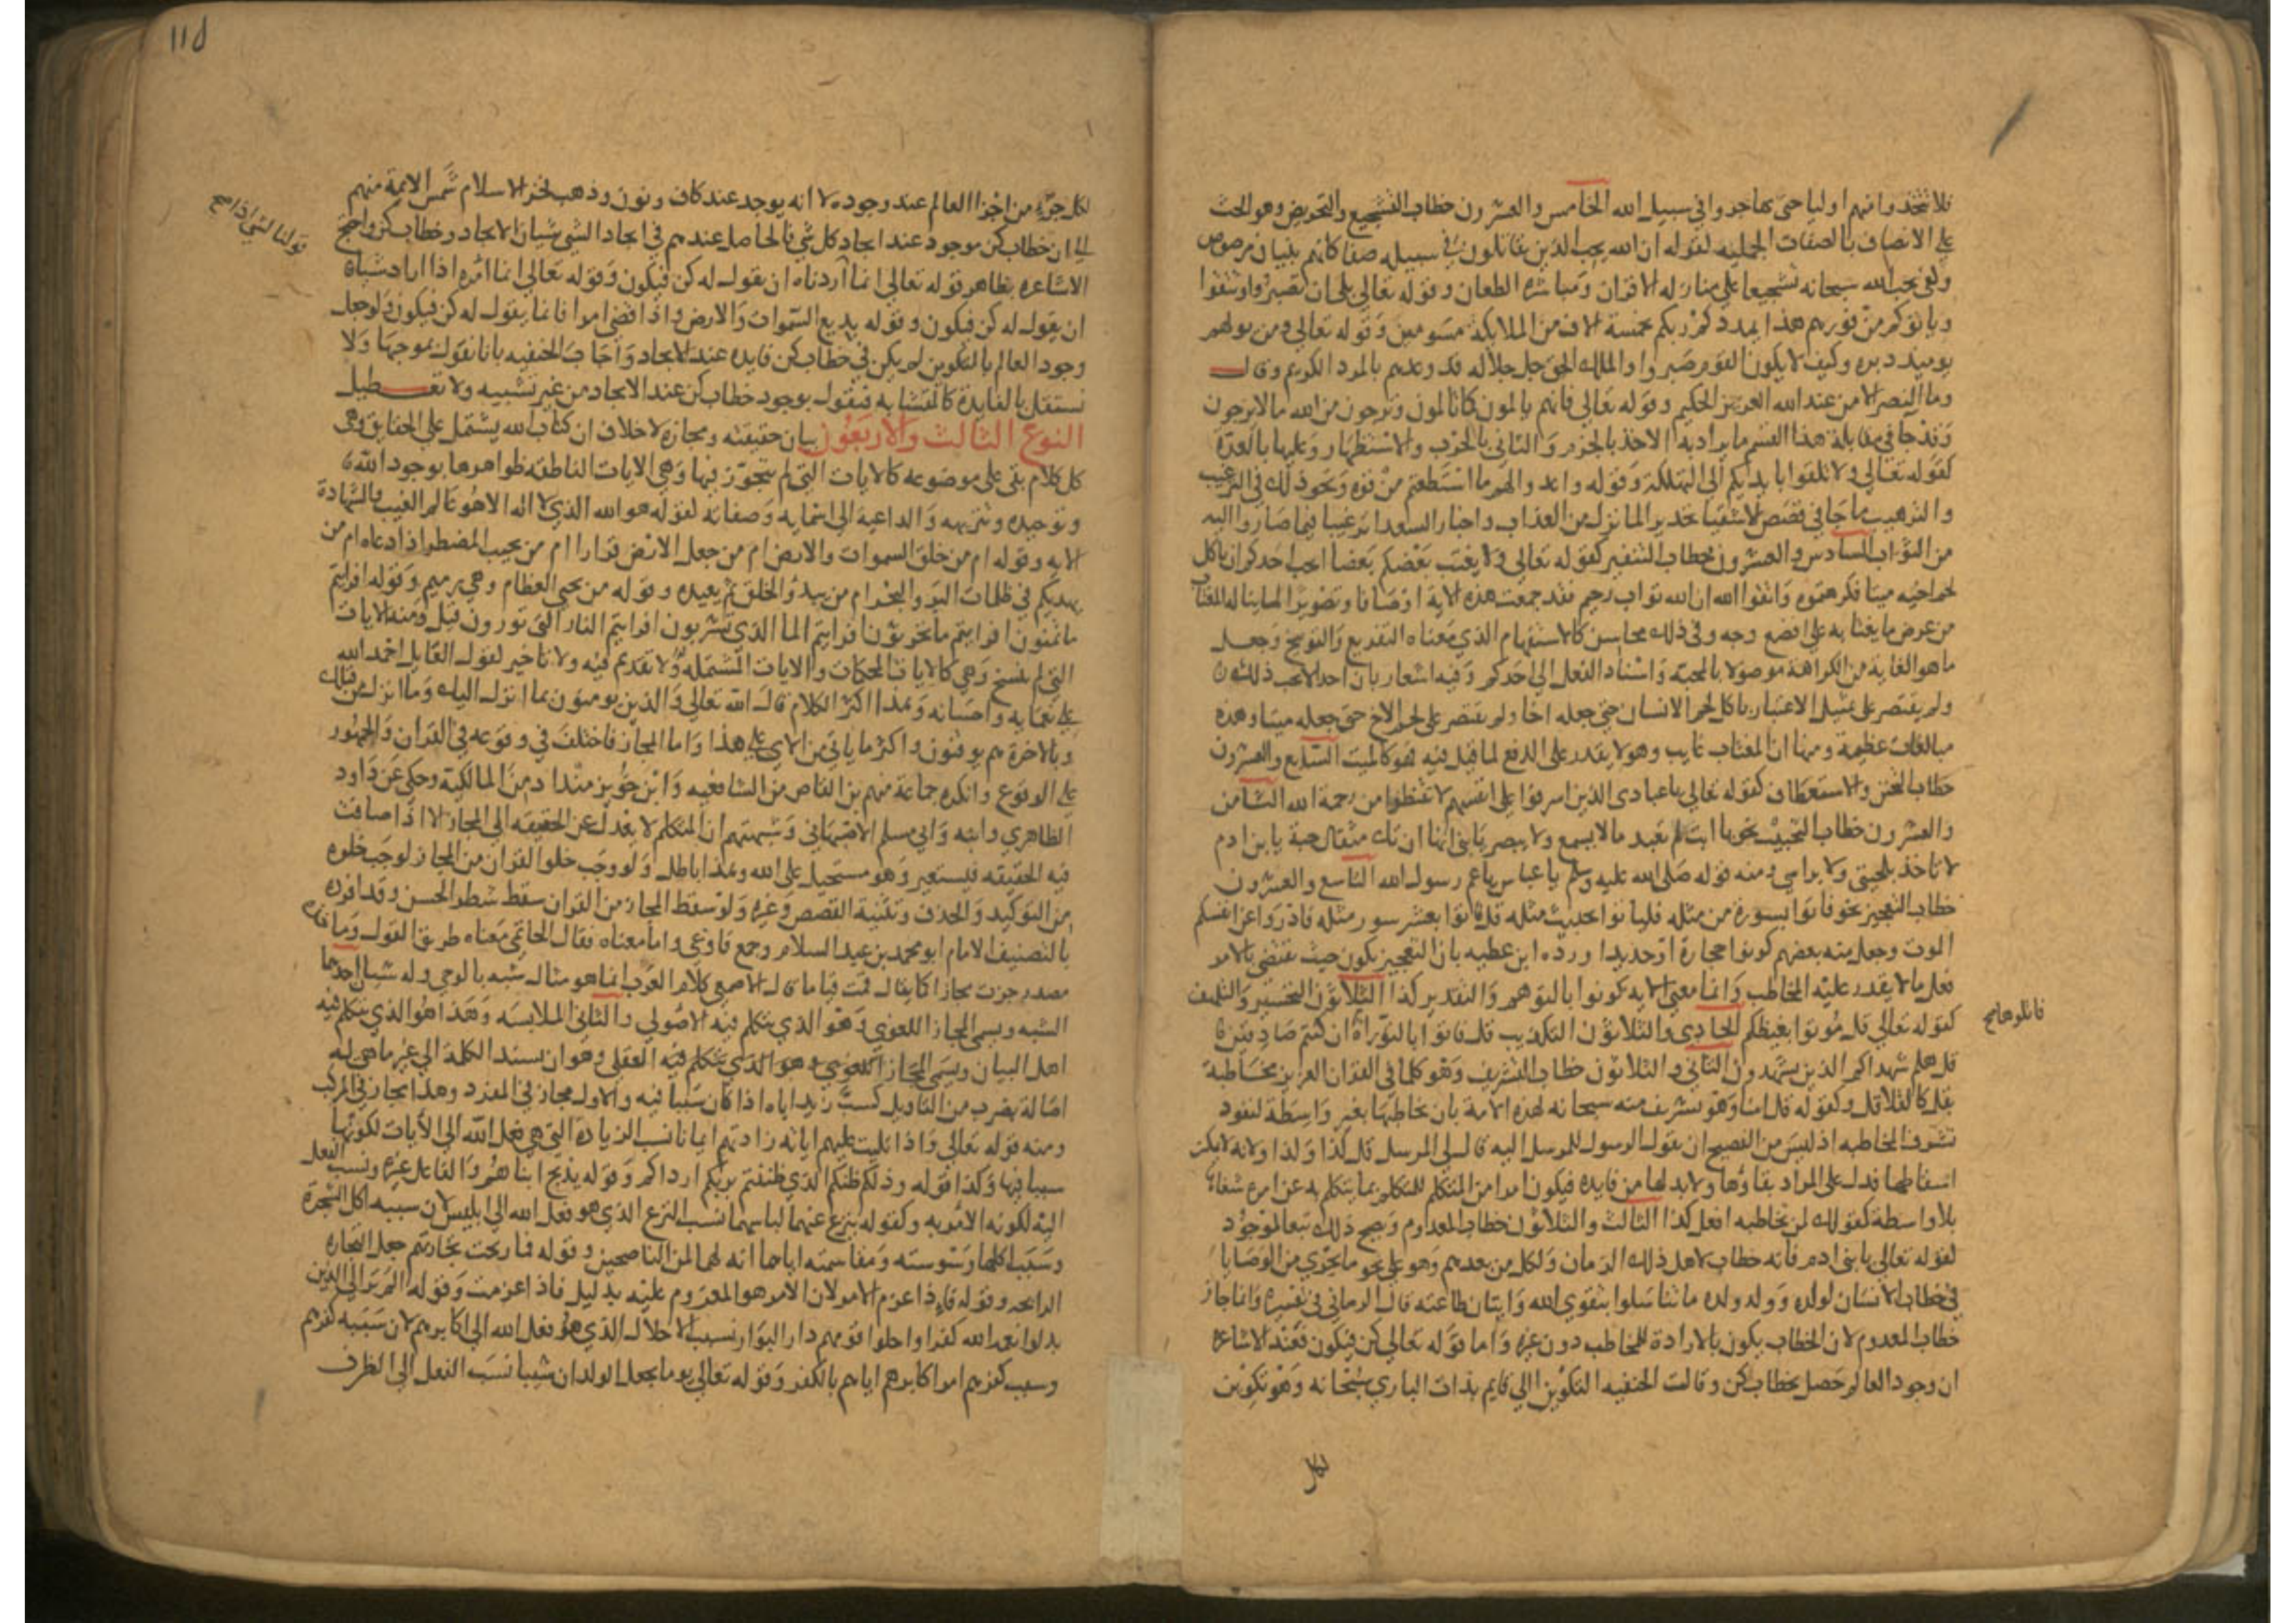 فلا تتخذوا منهم اوليا حتى يهاجروا في سبيل الله الخامس والعشرون خطاب التشجيع والتحريض وهو الحث
على الاتصاف بالصفات الجميله كقوله ان الله يحب الذين يقاتلون في سبيله صفا كانهم بنيان مرصوص
وكفى بحب الله سبحانه تشجيعا على منازله الاقران ومباشره الطعان وقوله تعالى بلى ان تصبروا وتتقوا
وياتوكم من فورهم هذا يمددكم ربكم بخمسة الاف من الملايكة مسومين وقوله تعالى ومن يولهم
يوميذ دبره وكيف لا يكون القوم صبروا والملك الحق جل جلاله قد وعدهم بالمرد الكريم وقال
وما النصر الا من عند الله العزيز الحكيم وقوله تعالى فانهم يالمون كما تالمون وترجون من الله ما لا يرجون
وقد جا في مقابلة هذا القسم ما يراد به الاخذ بالحزم والثاني بالحرب والاستظهار وعليها بالعدة
كقوله تعالى ولا تلقوا بايديكم الى التهلكة وقوله واعدوا لهم ما استطعتم من قوه ونحو ذلك في الترغيب
والترهيب ما جا في قصص الاشقيا تحذيرا لما نزل من العذاب واخبار السعدا ترغيبا فيما صاروا اليه
من الثواب السادس والعشرون خطاب التنفير كقوله تعالى ولا يغتب بعضكم بعضا ايحب احدكم ان ياكل
لحم اخيه ميتا فكرهتموه واتقوا الله ان الله تواب رحيم فقد جمعت هذه الاية اوصافا وتصويرا لما يناله المغتاب
من عرض ما يغتابه على افضع وجه وفي ذلك محاسن كالاستفهام الذي معناه التقريع والتوبيخ وجعل
ما هو الغاية من الكراهة موصولا بالمحبة واسناد الفعل الى احدكم وفيه اشعار بان احدا لا يحب ذلك
ولم يقتصر على تمثيل الاغتياب باكل لحم الانسان حتى جعله اخا ولم يقتصر على لحم الاخ حتى جعله ميتا وهذه
مبالغات عظيمة ومنها ان المغتاب غايب وهو لا يقدر على الدفع لما قيل فيه فهو كالميت السابع والعشرون
خطاب التحنن والاستعطاف كقوله تعالى يا عبادي الذين اسرفوا على انفسهم لا تقنطوا من رحمة الله الثامن
والعشرون خطاب التحبيب نحو يا ابت لم تعبد ما لا يسمع ولا يبصر يا بني انها ان تك مثقال حبة يا ابن ادم
لا تاخذ بلحيتي ولا براسي ومنه قوله صلى الله عليه وسلم يا عباس يا عم رسول الله التاسع والعشرون
خطاب التعجيز نحو فاتوا بسورة من مثله فلياتوا بحديث مثله قل فاتوا بعشر سور مثله فادروا عن انفسكم
الموت وجعل منه بعضهم كونوا حجارة او حديدا ورده ابن عطيه بان التعجيز يكون حيث يقتضى بالامر
فعل ما لا يقدر عليه المخاطب وانما معنى الايه كونوا بالتوهم والتقدير كذا الثلاثون التحسير والتلهف
كقوله تعالى قل موتوا بغيظكم الحادي والثلاثون التكذيب قل فاتوا بالتوراة ان كنتم صادقين
فاتلوها صح
قل هلم شهداكم الذين يشهدون الثاني والثلاثون خطاب التشريف وهو كلما في القران العزيز مخاطبة
بقل كالقلاقل وكقوله قل امنا وهو تشريف منه سبحانه لهذه الامة بان يخاطبها بغير واسطة لتفوز
بشرف المخاطبه اذ ليس من الفصيح ان يقول الرسول للمرسل اليه قال لي المرسل قل كذا وكذا ولانه لا يمكن
اسقاطها فدل على المراد بقاوها ولا بد لها من فايده فيكون امرا من المتكلم للمتكلم بما يتكلم به عن امره شفاها
بلا واسطة كقولك لمن تخاطبه افعل كذا الثالث والثلاثون خطاب المعدوم ويصح ذلك تبعا لموجود
كقوله تعالى يا بني ادم فانه خطاب لاهل ذلك الزمان ولكل من بعدهم وهو على نحو ما يجري من الوصايا
في خطاب الانسان لولده وولد ولده ما تناسلوا بتقوى الله واتيان طاعته قال الرماني في تفسيره وانما جاز
خطاب المعدوم لان الخطاب يكون بالارادة للمخاطب دون غيره واما قوله تعالى كن فيكون فعند الاشاعره
ان وجود العالم حصل بخطاب كن وقالت الحنفيه التكوين ازلي قايم بذات الباري سبحانه وهو تكوين
لكل
١١٥
لكل جزء من اجزا العالم عند وجوده لا انه يوجد عند كاف ونون وذهب فخر الاسلام شمس الايمة منهم
الى ان خطاب كن موجود عند ايجاد كل شي فالحاصل عندهم في ايجاد الشي شيان الايجاد وخطاب كن واحتج
الاشاعره بظاهر قوله تعالى انما اردناه ان نقول له كن فيكون وقوله تعالى انما امره اذا اراد شيا
قولنا لشي اذا صح
ان يقول له كن فيكون وقوله بديع السموات والارض واذا قضى امرا فانما يقول له كن فيكون ولو حصل
وجود العالم بالتكوين لم يكن في خطاب كن فايده عند الايجاد واجاب الحنفيه بانا نقول بموجبها ولا
نستقل بالفايدة كالمتشابه فنقول بوجود خطاب كن عند الايجاد من غير تشبيه ولا تعطيل
النوع الثالث والاربعون بيان حقيقته ومجازه لا خلاف ان كتاب الله يشتمل على الحقايق وهي
كل كلام بقى على موضوعه كالايات التي لم يتجوز فيها وهي الايات الناطقه ظواهرها بوجود الله
وتوحيده وتنزيهه والداعية الى اسمايه وصفاته كقوله هو الله الذي لا اله الا هو عالم الغيب والشهادة
الايه وقوله ام من خلق السموات والارض ام من جعل الارض قرارا ام من يجيب المضطر اذا دعاه ام من
يهديكم في ظلمات البر والبحر ام من يبدؤ الخلق ثم يعيده وقوله من يحي العظام وهي رميم وقوله افرايتم
ما تمنون افرايتم ما تحرثون افرايتم الما الذي تشربون افرايتم النار التي تورون قيل ومنه الايات
التي لم تنسخ وهي كالايات المحكات والايات المشتمله ولا تقديم فيه ولا تاخير كقول القايل احمد الله
على نعمايه واحسانه وهذا اكثر الكلام قال الله تعالى والذين يومنون بما انزل اليك وما انزل من قبلك
وبالاخرة هم يوقنون واكثر ما ياتي من الاي على هذا واما المجاز فاختلف في وقوعه في القران والجمهور
على الوقوع وانكره جماعة منهم بن القاص من الشافعيه وابن خويز منداد من المالكية وحكي عن داود
الظاهري وابنه وابي مسلم الاصبهاني وشبهتهم ان المتكلم لا يعدل عن الحقيقه الى المجاز الا اذا ضاقت
فيه الحقيقه فيستعير وهو مستحيل على الله وهذا باطل ولو وجب خلوا القران من المجاز لوجب خلوه
من التوكيد والحذف وتثنية القصص وغيره ولو سقط المجاز من القران سقط شطر الحسن وقد افرده
بالتصنيف الامام ابو محمد بن عبد السلام وجمع فاوعى واما معناه فقال الحاتمي معناه طريق القول وماخذه
مصدر جزت مجازا كما يقال قمت قياما قال الاصمعي كلام العرب انما هو مثال شبه بالوحي وله شيان احدها
الشبه ويسمى المجاز اللغوي وهو الذي يتكلم فيه الاصولي والثاني الملابسه وهذا هو الذي يتكلم فيه
اهل البيان ويسمى المجاز اللغوي وهو الذي يتكلم فيه العقلي وهو ان يسند الكلمة الى غير ما هي له
اصالة بضرب من التاويل كسب زيد اباه اذا كان سببا فيه والاول مجاز في المفرد وهذا مجاز في المركب
ومنه قوله تعالى واذا تليت عليهم اياته زادتهم ايمانا نسب الزيادة التي هي فعل الله الى الايات لكونها
سببا فيها وكذا قوله وذلكم ظنكم الذي ظننتم بربكم ارداكم وقوله يذبح ابناهم والفاعل غيره ونسب الفعل
اليه لكونه الامر به وكقوله ينزع عنهما لباسهما نسب النزع الذي هو فعل الله الى ابليس لان سببه اكل الشجرة
وسبب اكلها وسوسته ومقاسمته اياهما انه لهما لمن الناصحين وقوله فما ربحت تجارتهم جعل التجاره
الرابحه وقوله فاذا عزم الامر لان الامر هو المعزوم عليه بدليل فاذا عزمت وقوله الم تر الى الذين
بدلوا نعمة الله كفرا واحلوا قومهم دار البوار نسب الاحلال الذي هو فعل الله الى اكابرهم لان سببه كفرهم
وسبب كفرهم امر اكابرهم اياهم بالكفر وقوله تعالى يوما يجعل الولدان شيبا نسب الفعل الى الظرف